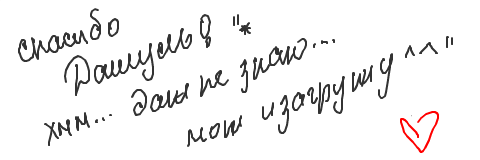 спасибо
Дашуль! "*
хмм... даж не знаю...
мот и загружу ^^"